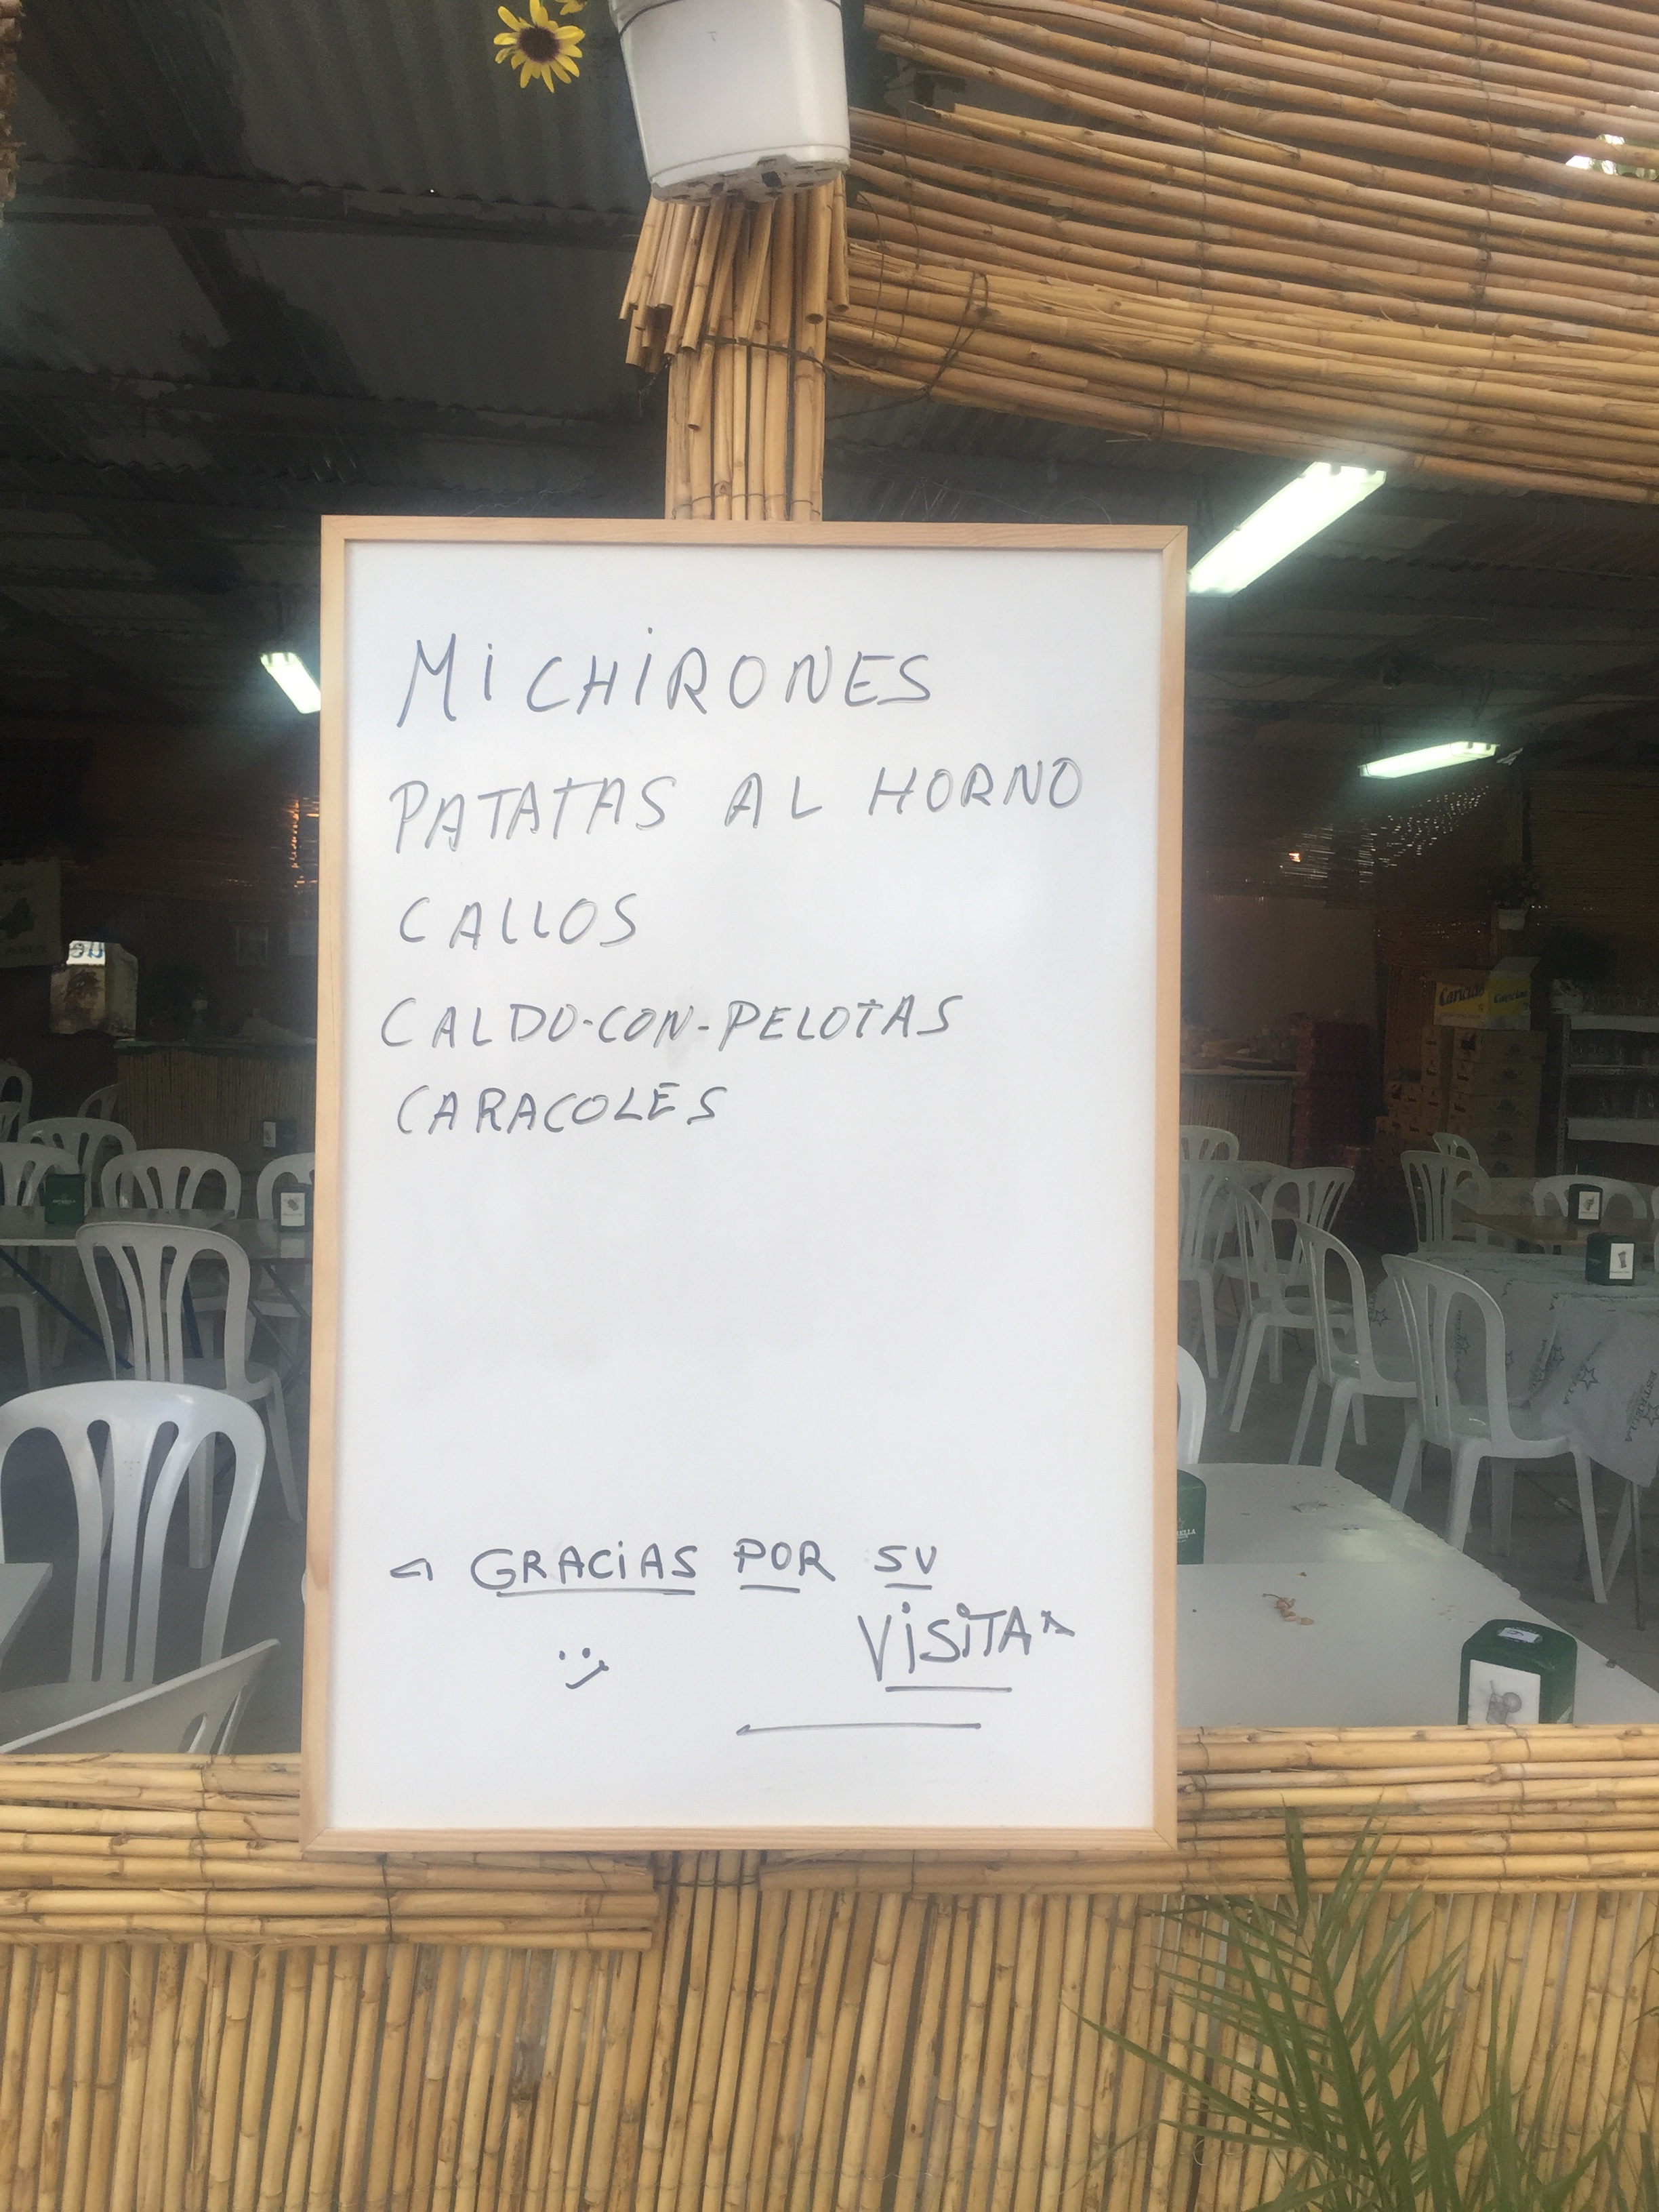 MiCHiRONES
PATATAS AL HORNO
CALLOS
CALDO-CON-PELOTAS
CARACOLES
GRACiAS POR SU
ViSiTA
:)
Caricias
ESTRELLA